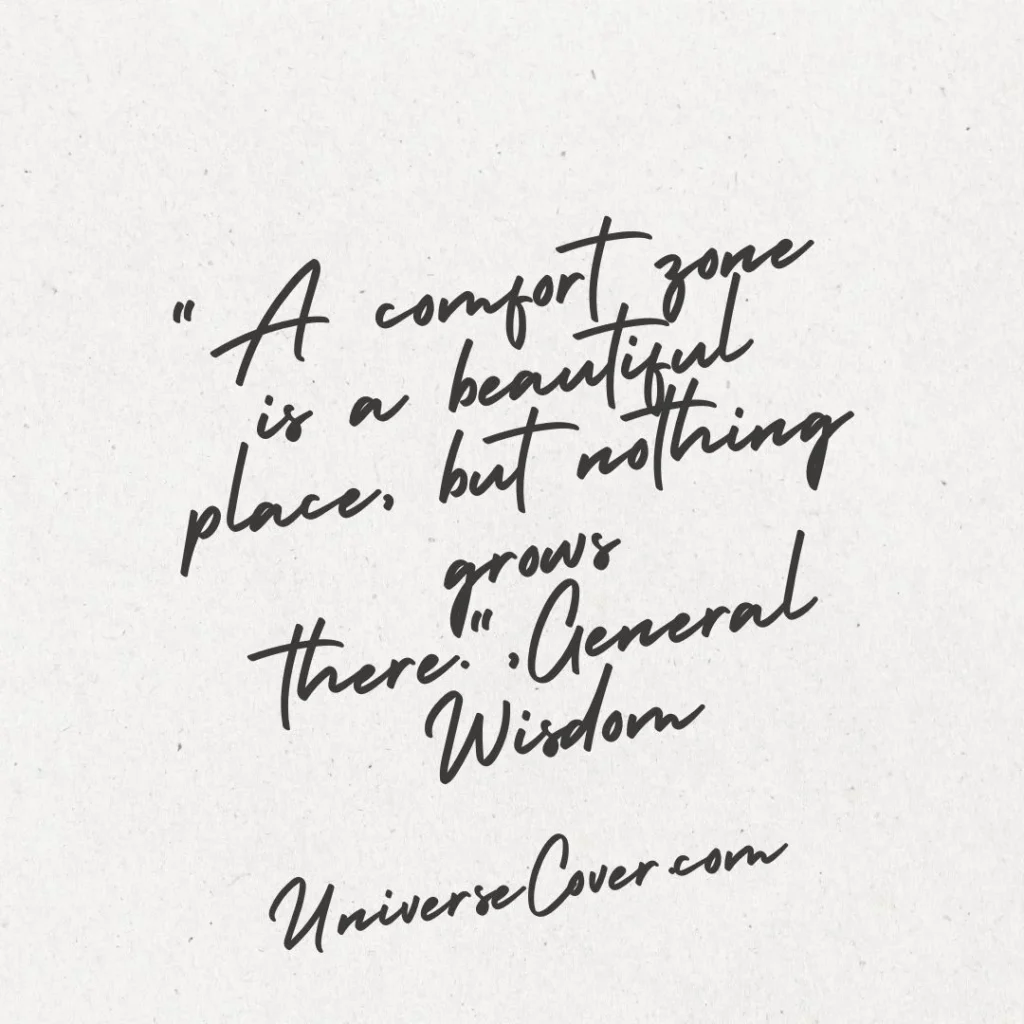 " A comfort zone
is a beautiful
place, but nothing
grows
there." ,General
Wisdom
UniverseCover.com